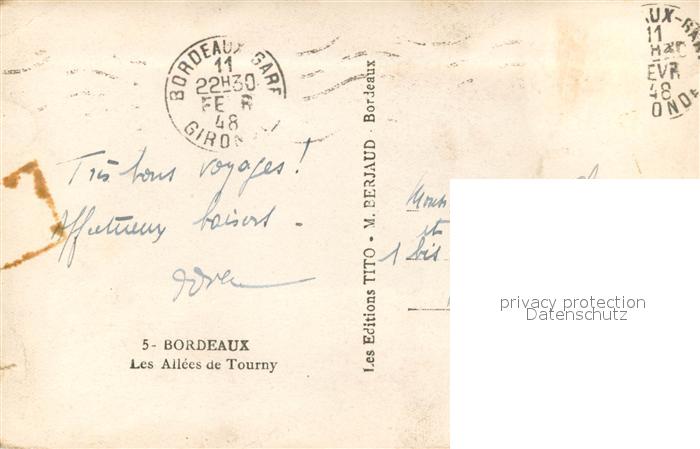 BORDEAUX GARE
11
22H30
FEVR
48
GIRONDE
UX-GARE
11
H30
EVR
48
ONDE
Très bons voyages !
Affectueux baisers -
5 - BORDEAUX
Les Allées de Tourny
Les Editions TITO - M. BERJAUD - Bordeaux
Mons
et
1 bis
privacy protection
Datenschutz